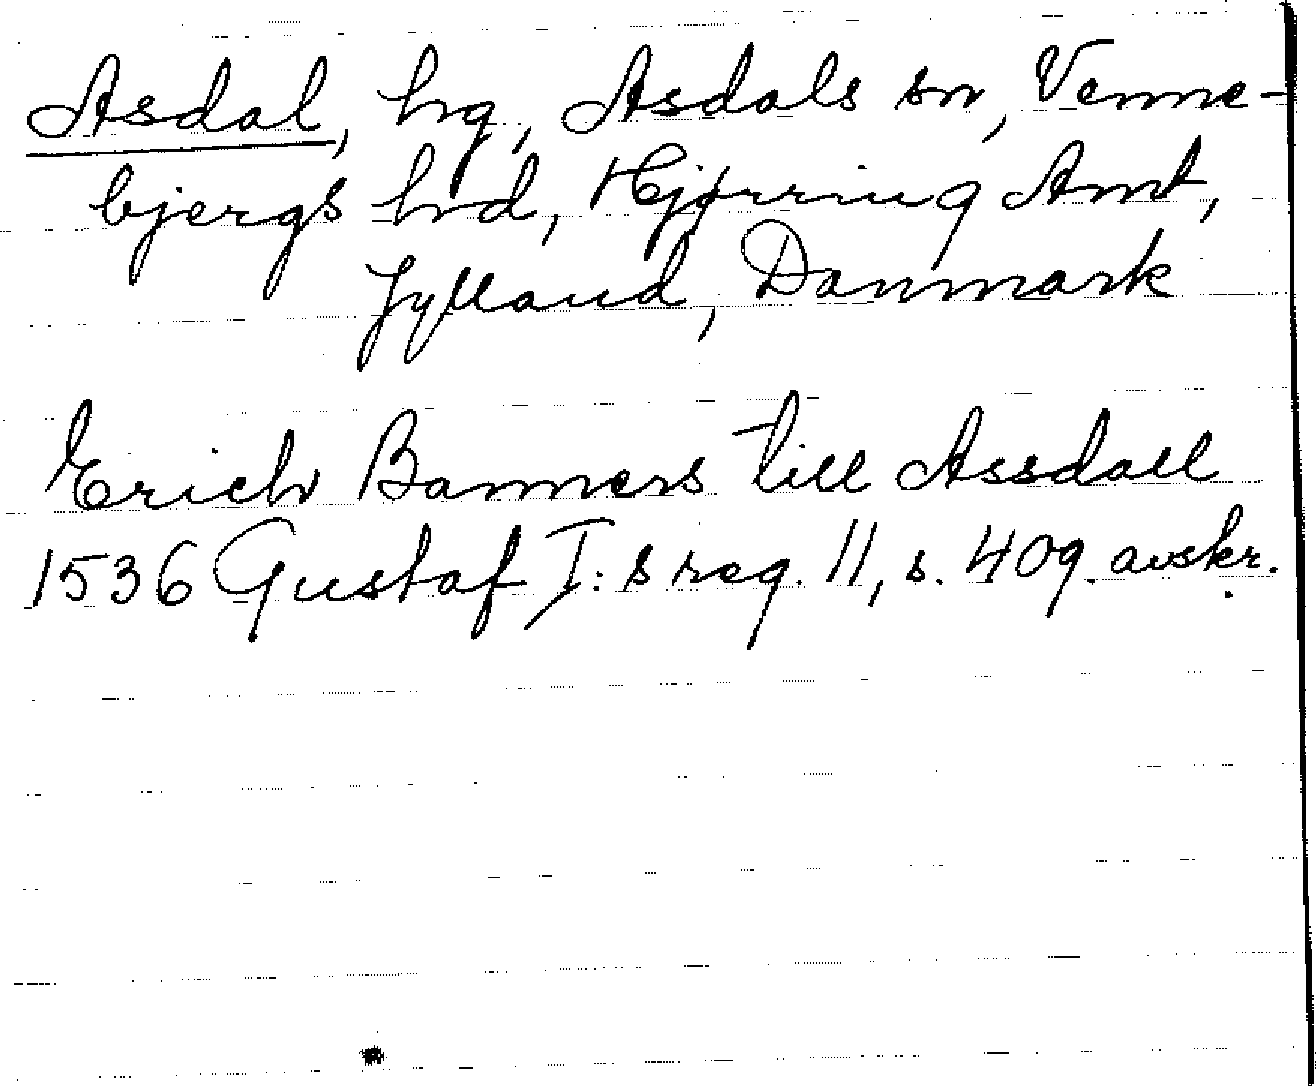 Asdal, hg, Asdals sn, Venne-
bjergs hrd, Hjørring Amt,
Jylland, Danmark
Erich Banners till Assdall
1536 Gustaf I:s reg. 11, s. 409. avskr.